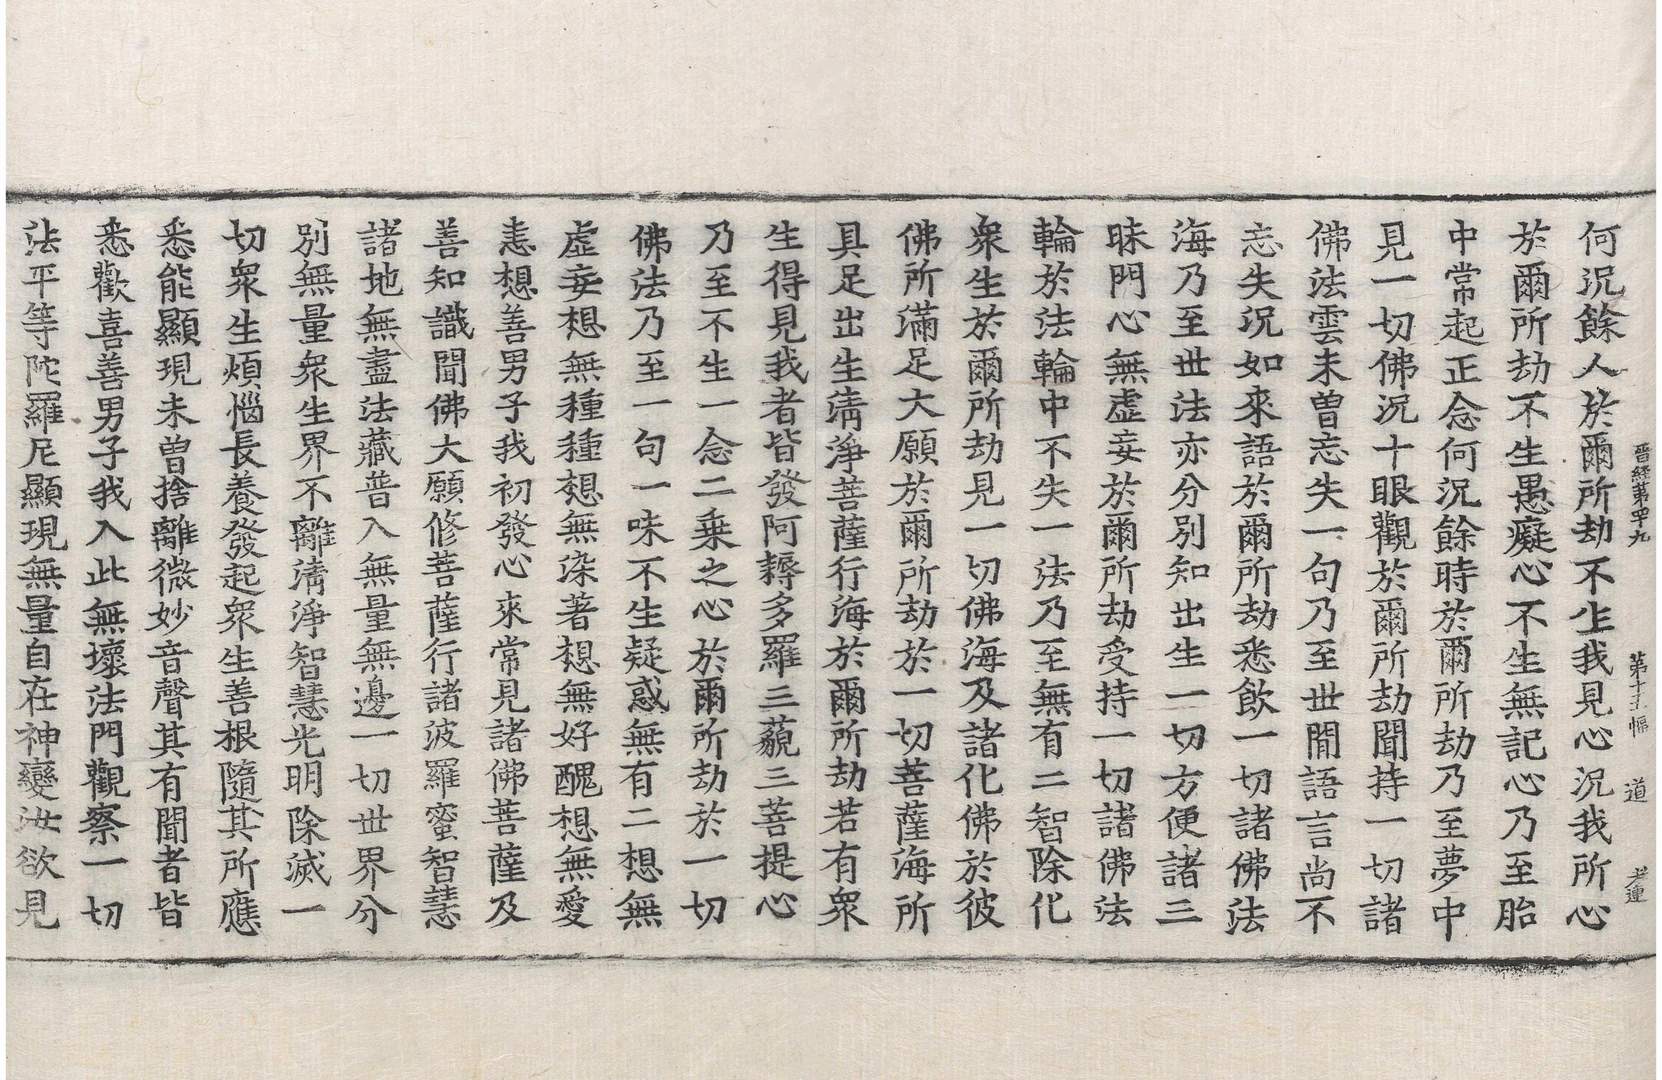 晋経第四十九　第十五幅　道　老連
何況餘人於爾所劫不生我見心況我所心
於爾所劫不生愚癡心不生無記心乃至胎
中常起正念何況餘時於爾所劫乃至夢中
見一切佛況十眼觀於爾所劫聞持一切諸
佛法雲未曾忘失一句乃至世閒語言尚不
忘失況如來語於爾所劫悉飲一切諸佛法
海乃至世法亦分別知出生一切方便諸三
昧門心無虛妄於爾所劫受持一切諸佛法
輪於法輪中不失一法乃至無有二智除化
衆生於爾所劫見一切佛海及諸化佛於彼
佛所滿足大願於爾所劫於一切菩薩海所
具足出生淸淨菩薩行海於爾所劫若有衆
生得見我者皆發阿耨多羅三藐三菩提心
乃至不生一念二乗之心於爾所劫於一切
佛法乃至一句一味不生疑惑無有二想無
虛妄想無種種想無染著想無好醜想無愛
恚想善男子我初發心來常見諸佛菩薩及
善知識聞佛大願修菩薩行諸波羅蜜智慧
諸地無盡法藏普入無量無邊一切世界分
別無量衆生界不離淸淨智慧光明除滅一
切衆生煩惱長養發起衆生善根隨其所應
悉能顯現未曾捨離微妙音聲其有聞者皆
悉歡喜善男子我入此無壞法門觀察一切
法平等陀羅尼顯現無量自在神變汝欲見